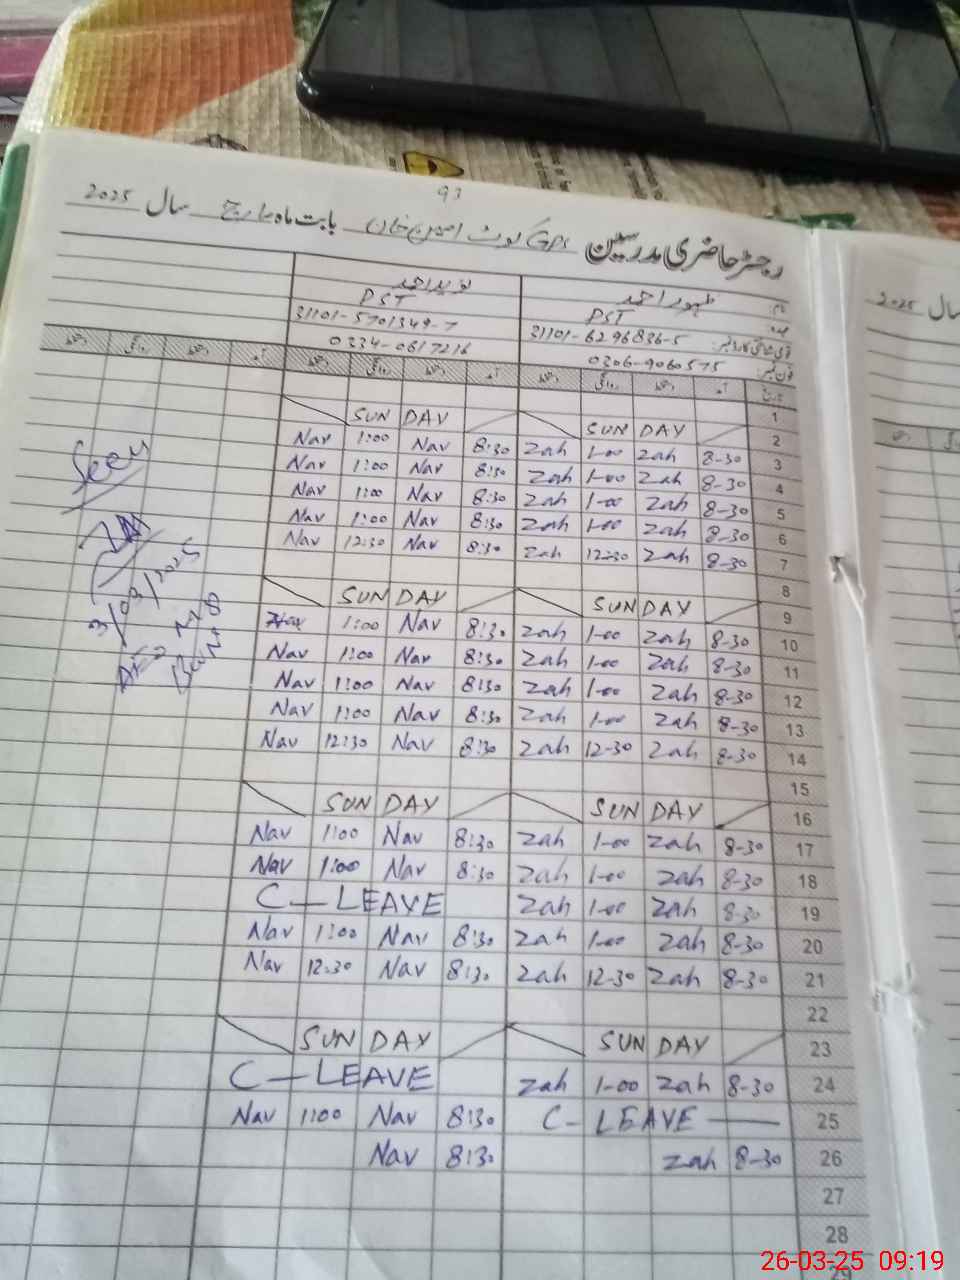 93
رجسٹر حاضری مدرسین GPS کوٹ خان بابت ماہ مارچ سال 2025
نام ظہور احمد نوید احمد
عہدہ PST PST
قومی شناختی کارڈ نمبر: 31101-6296836-5 31101-5701349-7
فون نمبر: 0306-9060575 0334-0617216
تاریخ
1
SUNDAY SUNDAY 2
Nav 1:00 Nav 8:30 Zah 1-00 Zah 8-30 3
Nav 1:00 Nav 8:30 Zah 1-00 Zah 8-30 4
Nav 1:00 Nav 8:30 Zah 1-00 Zah 8-30 5
Nav 1:00 Nav 8:30 Zah 1-00 Zah 8-30 6
Nav 12:30 Nav 8:30 Zah 12-30 Zah 8-30 7
8
SUNDAY SUNDAY 9
Nav 1:00 Nav 8:30 Zah 1-00 Zah 8-30 10
Nav 1:00 Nav 8:30 Zah 1-00 Zah 8-30 11
Nav 1:00 Nav 8:30 Zah 1-00 Zah 8-30 12
Nav 1:00 Nav 8:30 Zah 1-00 Zah 8-30 13
Nav 12:30 Nav 8:30 Zah 12-30 Zah 8-30 14
15
SUNDAY SUNDAY 16
Nav 1:00 Nav 8:30 Zah 1-00 Zah 8-30 17
Nav 1:00 Nav 8:30 Zah 1-00 Zah 8-30 18
C-LEAVE Zah 1-00 Zah 8-30 19
Nav 1:00 Nav 8:30 Zah 1-00 Zah 8-30 20
Nav 12:30 Nav 8:30 Zah 12-30 Zah 8-30 21
22
SUNDAY SUNDAY 23
C-LEAVE Zah 1-00 Zah 8-30 24
Nav 1:00 Nav 8:30 C-LEAVE 25
Nav 8:30 Zah 8-30 26
27
28
29
Seen
3/03/2025
AEO
سال 2025
26-03-25 09:19